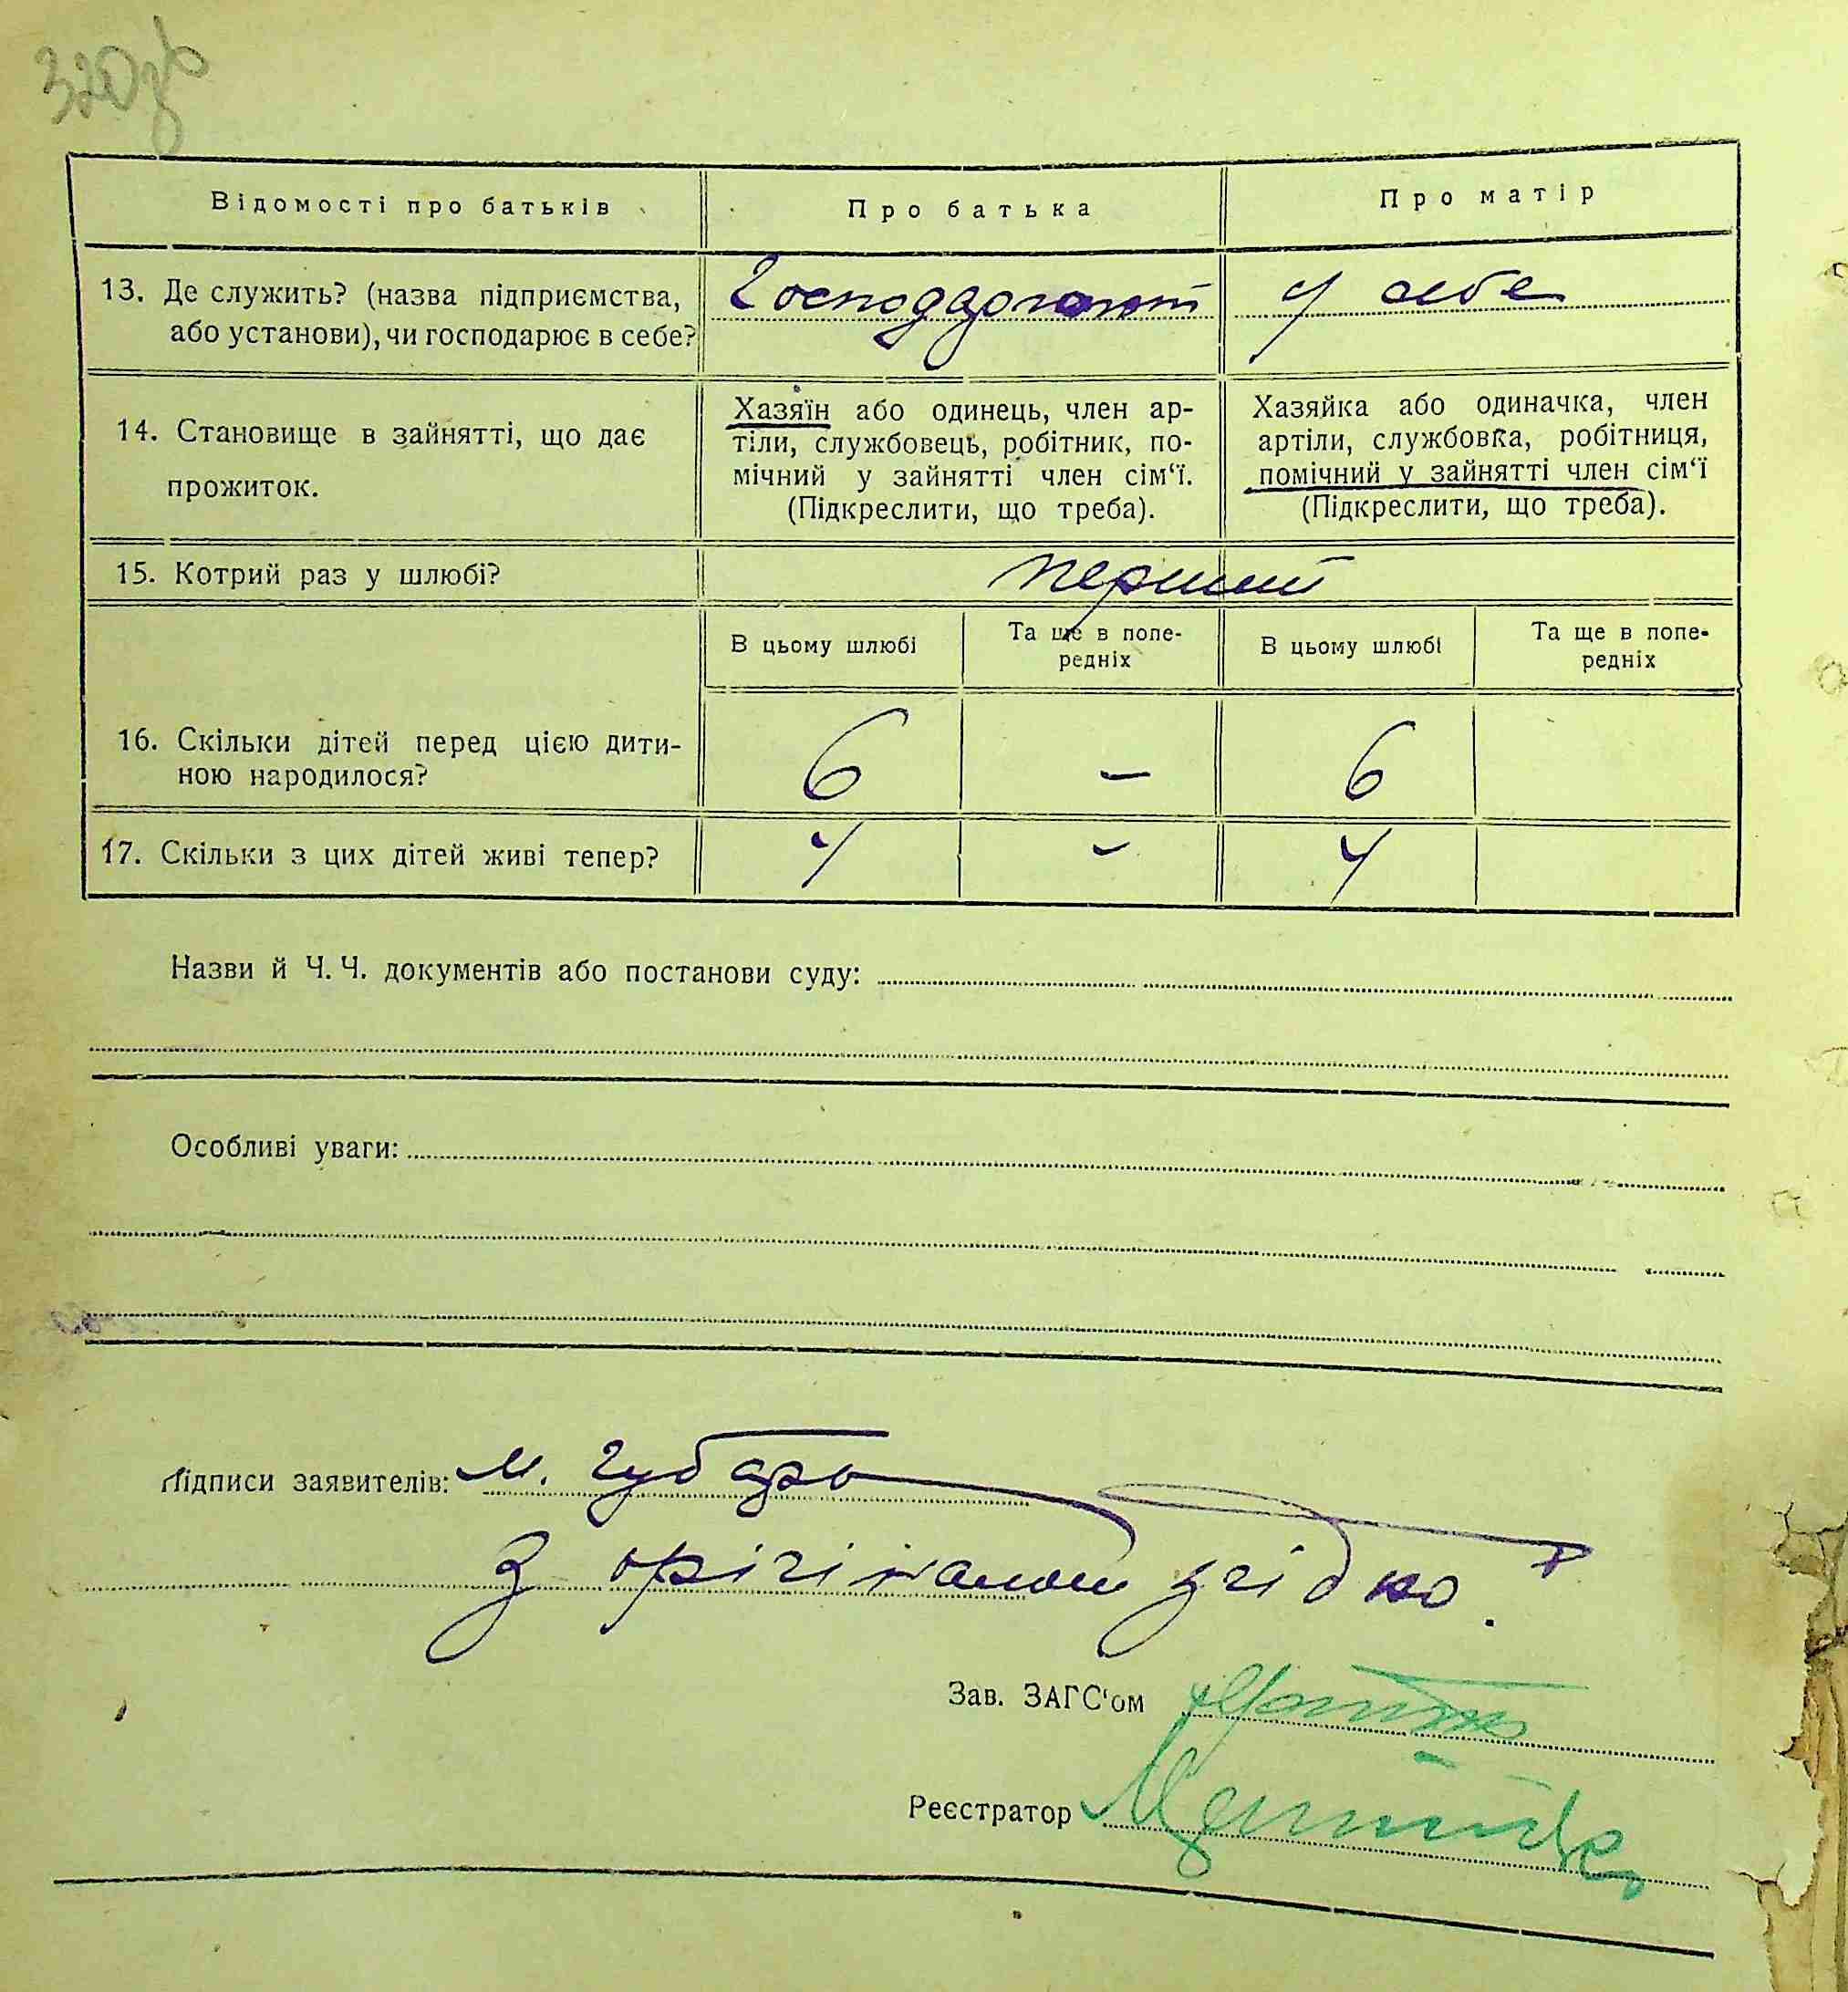 320зв
Відомості про батьків
Про батька
Про матір
13. Де служить? (назва підприємства,
або установи), чи господарює в себе?
Господарюють
у себе
14. Становище в зайнятті, що дає
прожиток.
Хазяїн або одинець, член ар-
тіли, службовець, робітник, по-
мічний у зайнятті член сім‘ї.
(Підкреслити, що треба).
Хазяйка або одиначка, член
артіли, службовка, робітниця,
помічний у зайнятті член сім‘ї
(Підкреслити, що треба).
15. Котрий раз у шлюбі?
перший
В цьому шлюбі
Та ще в попе-
редніх
В цьому шлюбі
Та ще в попе-
редніх
16. Скільки дітей перед цією дити-
ною народилося?
6 – 6
17. Скільки з цих дітей живі тепер?
4 – 4
Назви й Ч. Ч. документів або постанови суду:
Особливі уваги:
Підписи заявителів: М. Губарь
З орігіналом згідно.
Зав. ЗАГС‘ом
Реєстратор